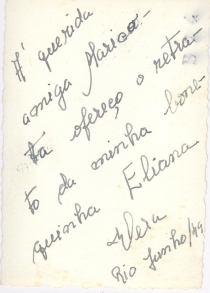 A' querida
amiga Marico-
ta ofereço o retra-
to da minha bone-
quinha Eliana
Vera
Rio Junho/49